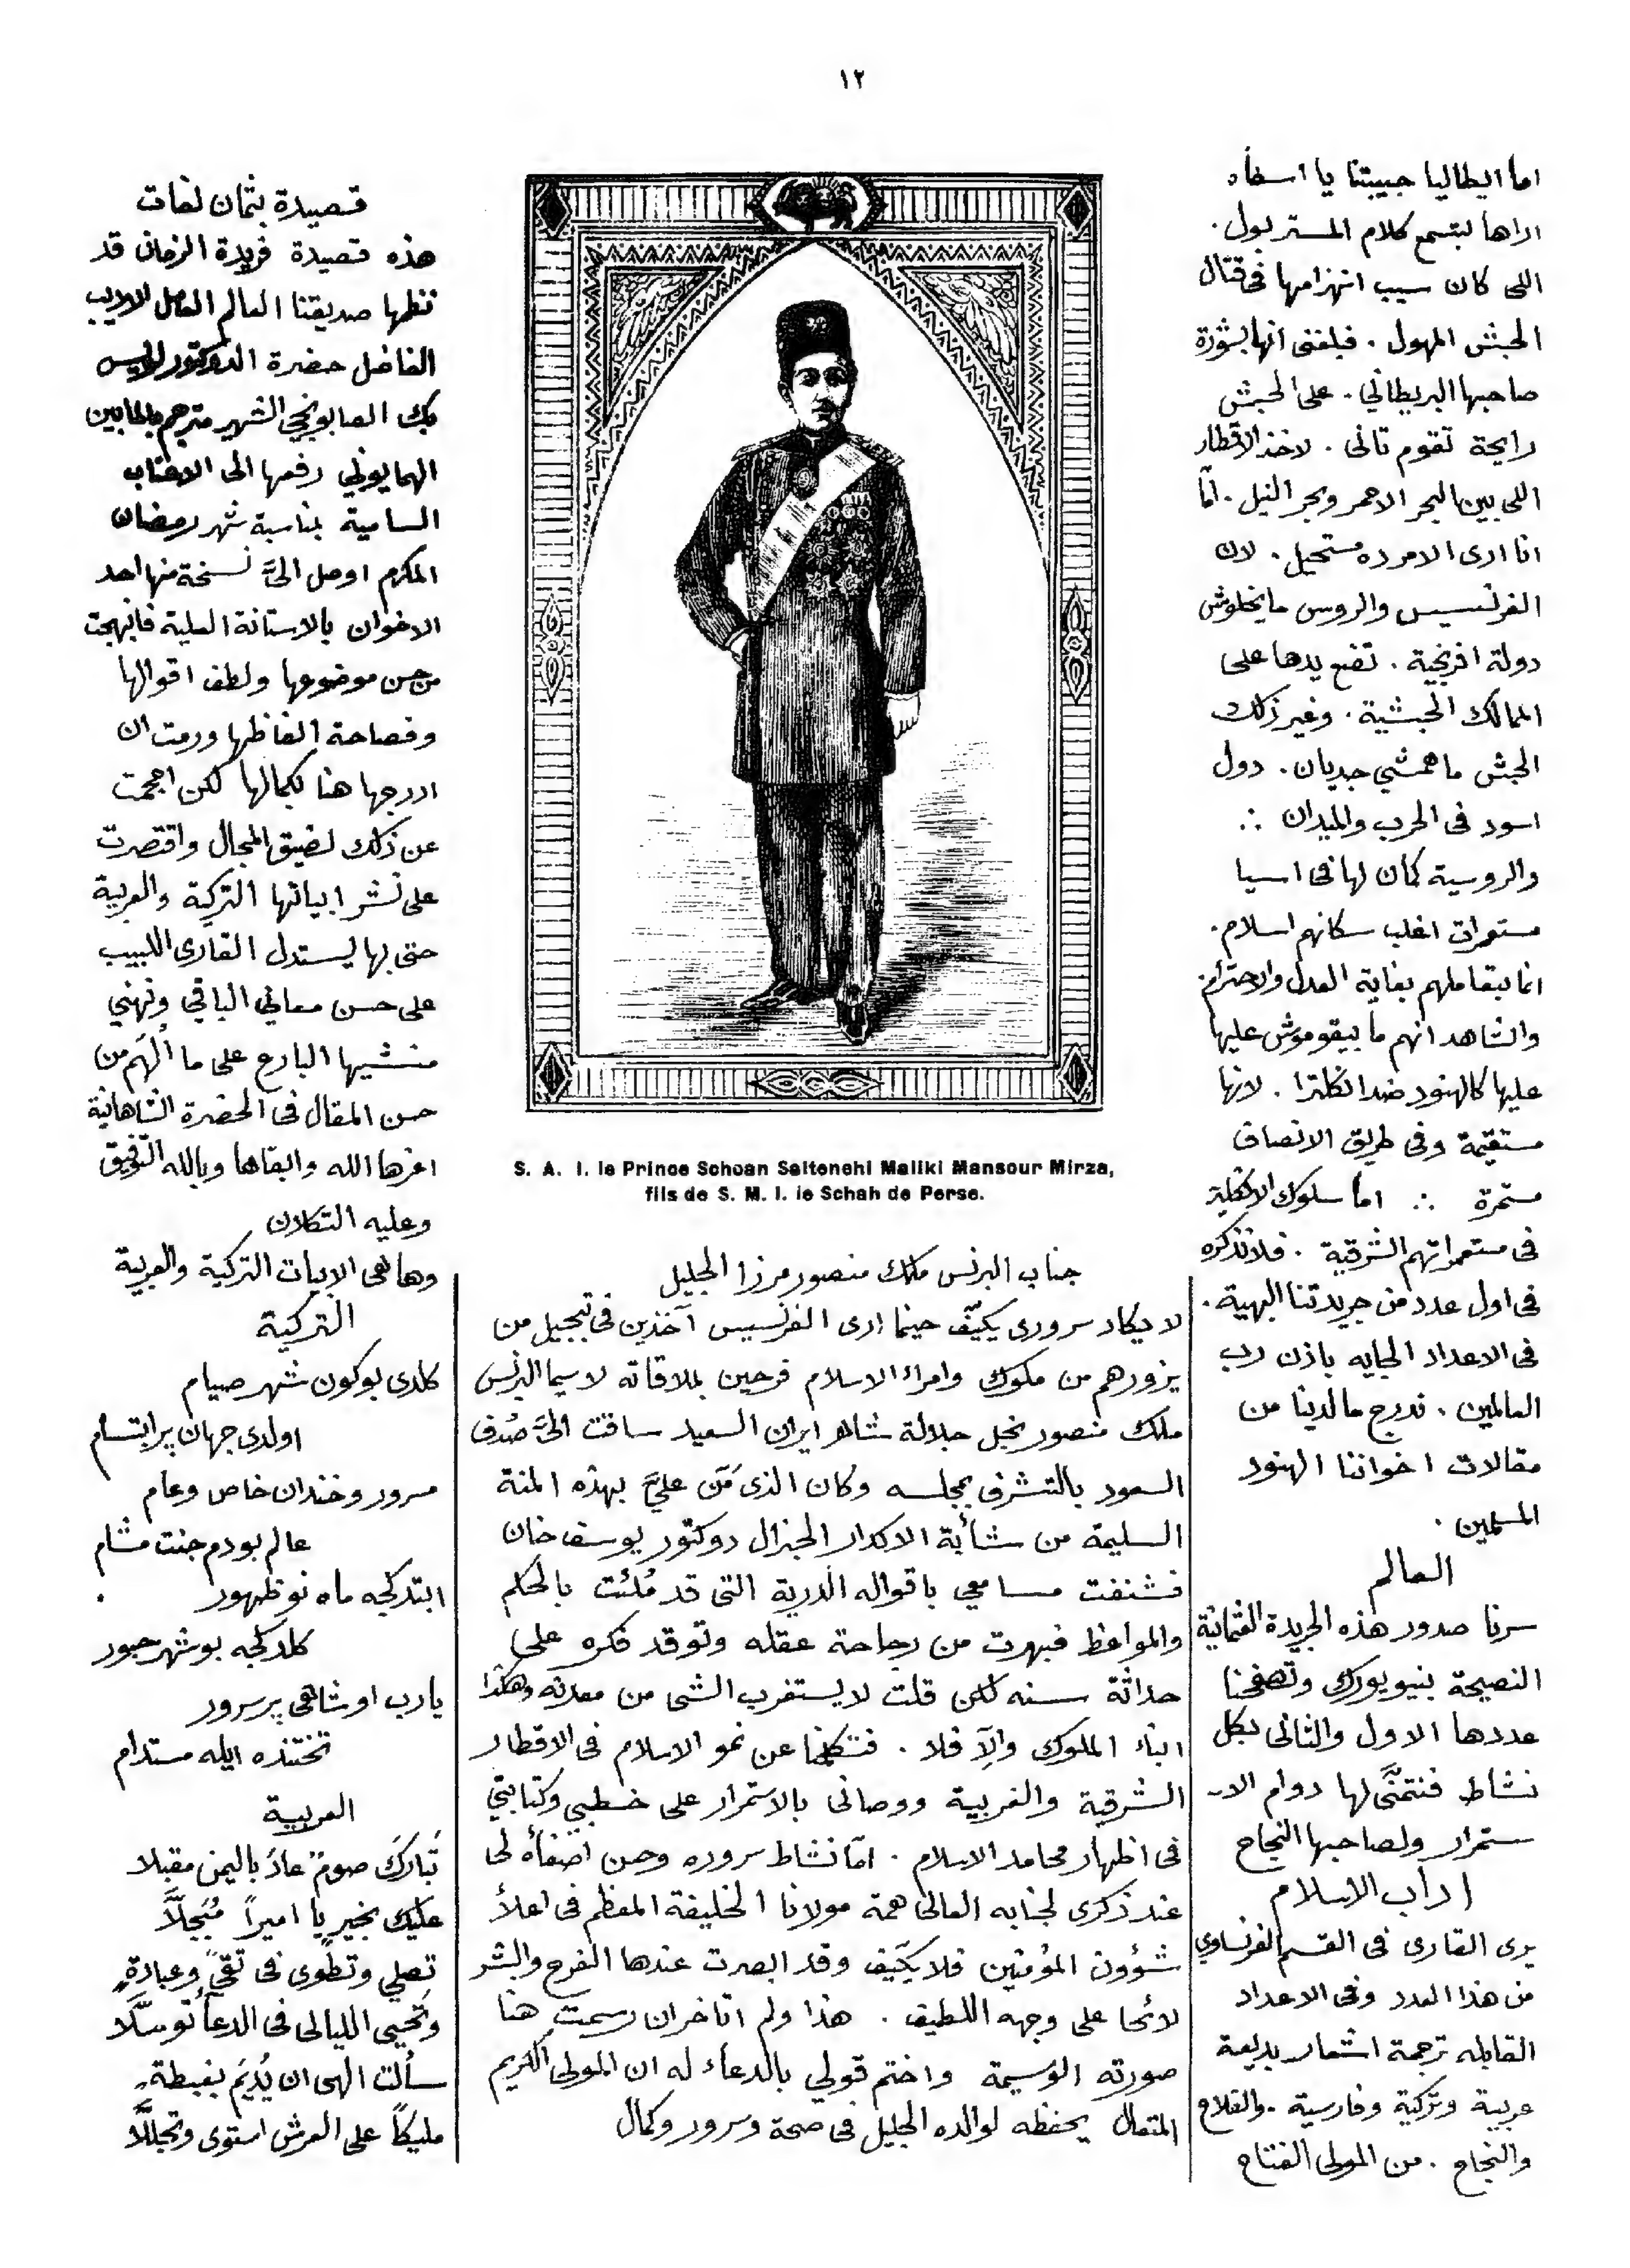 ١٢
اما ايطاليا حبيبتنا يا اسفاه
اراها لبتسمع كلام المستر بول .
اللى كان سبب انهزامها فى قتال
الحبش المهول . فبلغنى انها بشورة
صاحبها البريطانى . على الحبش
رايحة تقوم تانى . لاخذ الاقطار
اللى بين البحر الاحمر وبحر النيل . امّا
انا ارى الامر ده مستحيل . لان
الفرنسيس والروس ما يخلوش
دولة افرنجية . تضع يدها على
الممالك الحبشية . وغير ذلك
الحبش ما همشي جديان . دول
اسود فى الحرب والميدان ∴
والروسية كمان لها فى اسيا
مستعمرات اغلب سكانهم اسلام .
انما بتعاملهم بغاية العدل والاحترام .
والشاهد انهم ما بيقوموش عليها
عليها كالهنود ضد انكلترا . لانها
مستقيمة وفى طريق الانصاف
مستمرة ∴ اما سلوك الانكليز
فى مستعمراتهم الشرقية . فلا نذكره
فى اول عدد من جريدتنا البهية .
فى الاعداد الجايه باذن رب
العالمين . ندرج ما لدينا من
مقالات اخواننا الهنود
المسلمين .
العالم
سرنا صدور هذه الجريدة العثمانية
النصيحة بنيويورك وتصفحنا
عددها الاول والثانى بكل
نشاط فنتمنَّى لها دوام الا-
ستمرار ولصاحبها النجاح
اداب الاسلام
يرى القارى فى القسم الفرنساوي
من هذا العدد وفى الاعداد
القابله ترجمة اشعار بديعة
عربية وتركية وفارسية . والفلاح
والنجاح . من المولى الفتاح
S. A. I. le Prince Schoan Saltenehi Maliki Mansour Mirza,
fils de S. M. I. le Schah de Perse.
جناب البرنس ملك منصور مرزا الجليل
لا يكاد سرورى يكيّف حينما ارى الفرنسيس آخذين فى تبجيل من
يزورهم من ملوك وامراء الاسلام فرحين بملاقاته لاسيما البرنس
ملك منصور نجل جلالة شاه ايران السعيد ساقت الىَّ صُدف
السعود بالتشرف بمجلسه وكان الذى مَنّ علىَّ بهذه المنة
السليمة من شأبة الاكدار الجنرال دوكتور يوسف خان
فشنفت مسامعي باقواله الدرية التى قد مُلئت بالحكم
والمواعظ فبهرت من رجاحة عقله وتوقد فكره على
حداثة سنه لكن قلت لا يستغرب الشى من معدنه وهكذا
ابناء الملوك والاّ فلا . فتكلمنا عن نمو الاسلام فى الاقطار
الشرقية والغربية ووصانى بالاستمرار على خطبي وكتابتي
فى اظهار محامد الاسلام . امّا نشاط سروره وحسن اصغاه لى
عند ذكرى لجنابه العالى همة مولانا الخليفة المعظم فى اعلاء
شؤون المؤمنين فلا يكيّف وقد ابصرت عندها الفرح والبشر
لائحا على وجهه اللطيف . هذا ولم اتاخر ان رسمت هنا
صورته الوسيمة واختم قولي بالدعاء له ان المولى الكريم
المتعال يحفظه لوالده الجليل فى صحة وسرور وكمال
قصيدة بثمان لغات
هذه قصيدة فريدة الزمان قد
نظمها صديقنا العالم العامل الاديب
الفاضل حضرة الدوكتور لويس
بك الصابونجي الشهير مترجم بالمابين
الهمايونى رفعها الى الاعتاب
السامية بمناسبة شهر رمضان
المكرم اوصل الىَّ نسخة منها احد
الاخوان بالاستانة العلية فابتهجت
من حسن موضوعها ولطف اقوالها
وفصاحة الفاظها ورمت ان
ادرجها هنا بكمالها لكن احجمت
عن ذلك لضيق المجال واقتصرت
على نشر ابياتها التركية والعربية
حتى بها ليستدل القارى اللبيب
على حسن معانى الباقى ونهني
منشيها البارع على ما أُلهَم من
حسن المقال فى الحضرة الشاهانية
اعزها الله وابقاها وبالله التوفيق
وعليه التكلان
وها هى الابيات التركية والعربية
التركية
كلدى بوكون شهر صيام
اولدى جهان پر ابتسام
مسرور وخندان خاص وعام
عالم بودم جنت مشام
ابتدكجه ماه نو ظهور
كلدكجه بو شهر حبور
يارب او شاهى پر سرور
تختنده ايله مستدام
العربية
تَبارَكَ صومٌ عادَ باليمن مقبلا
عليك بخير يا اميراً مُبَجلاَّ
تصلي وتطوى فى تقىً وعبادةٍ
وتُحيى الليالى فى الدعآء توسّلا
سألت الهى ان يُديمَ بغبطةٍ
مليكاً على العرش استوى وتجللَّا